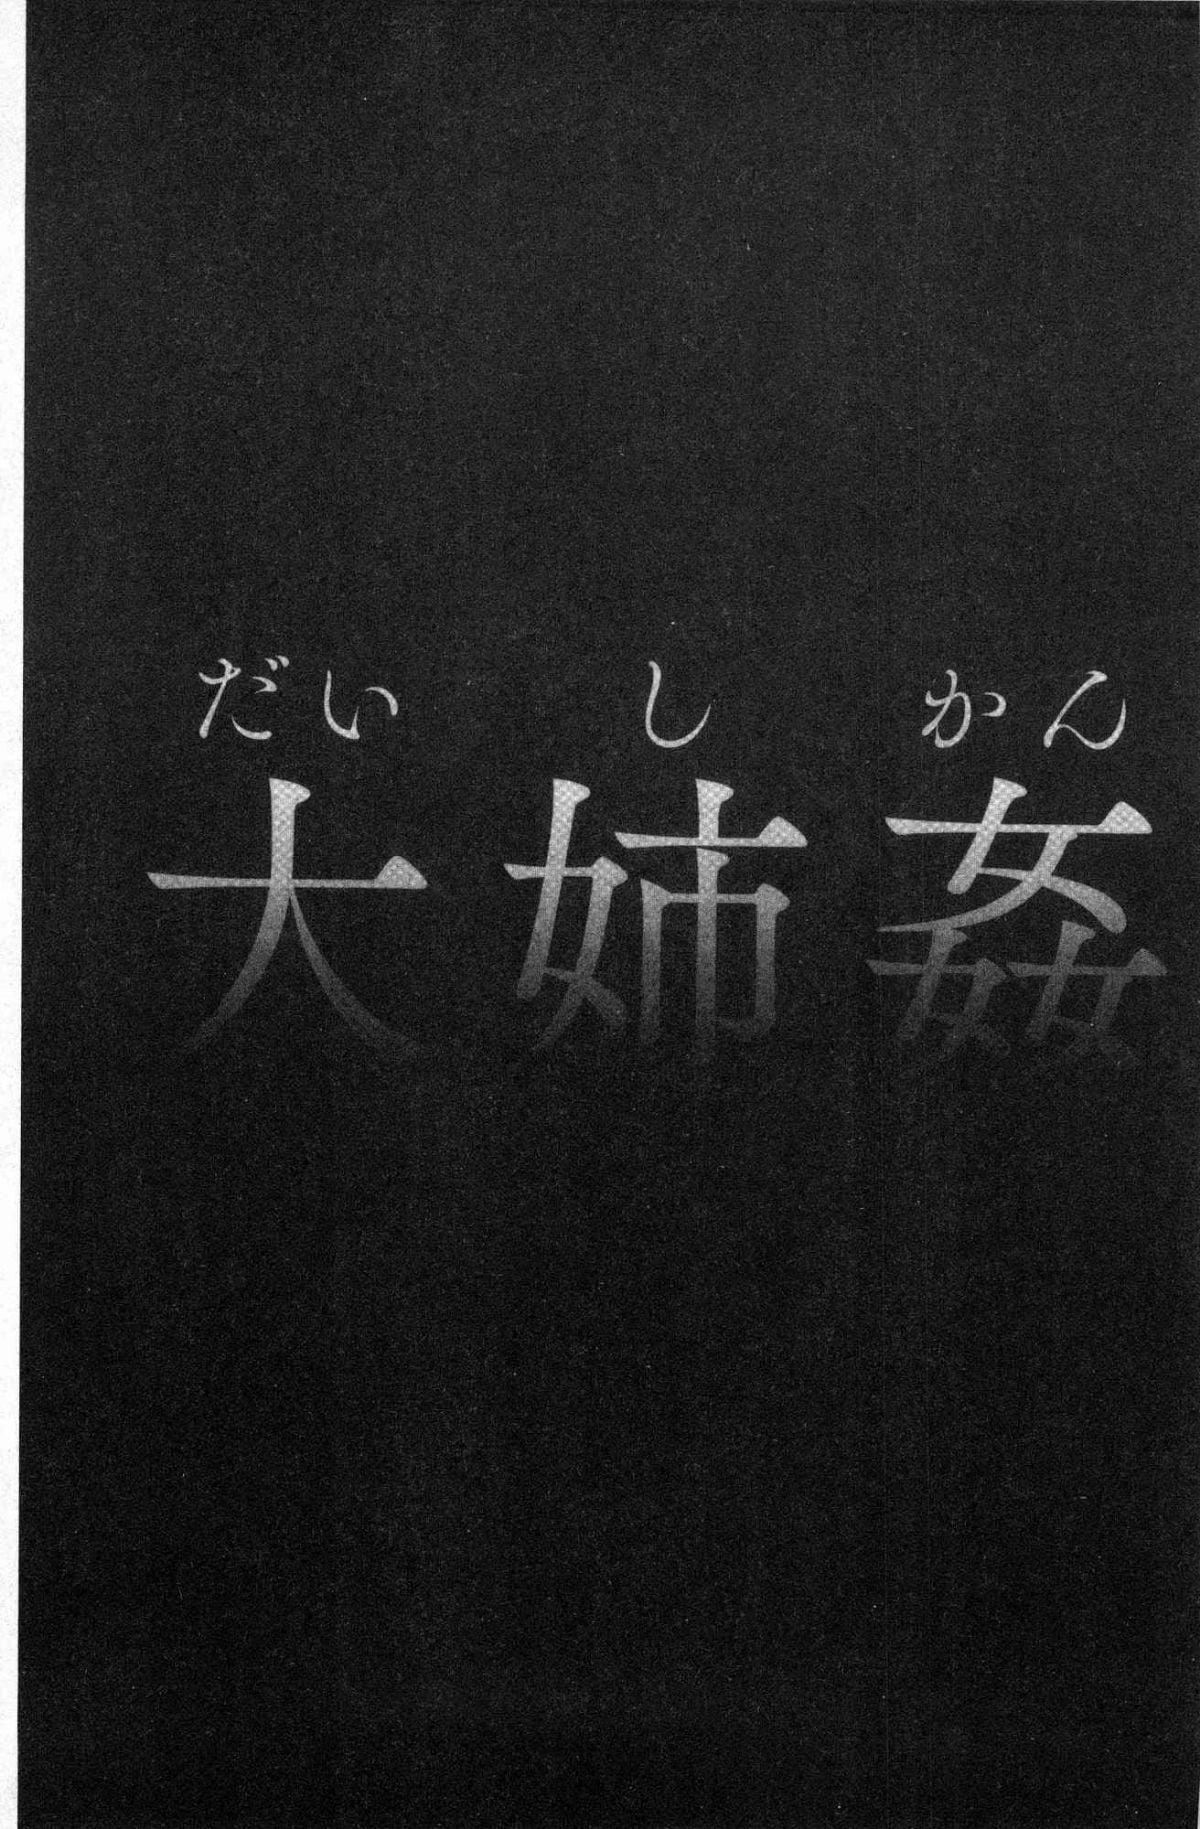 だい し かん
大姉姦